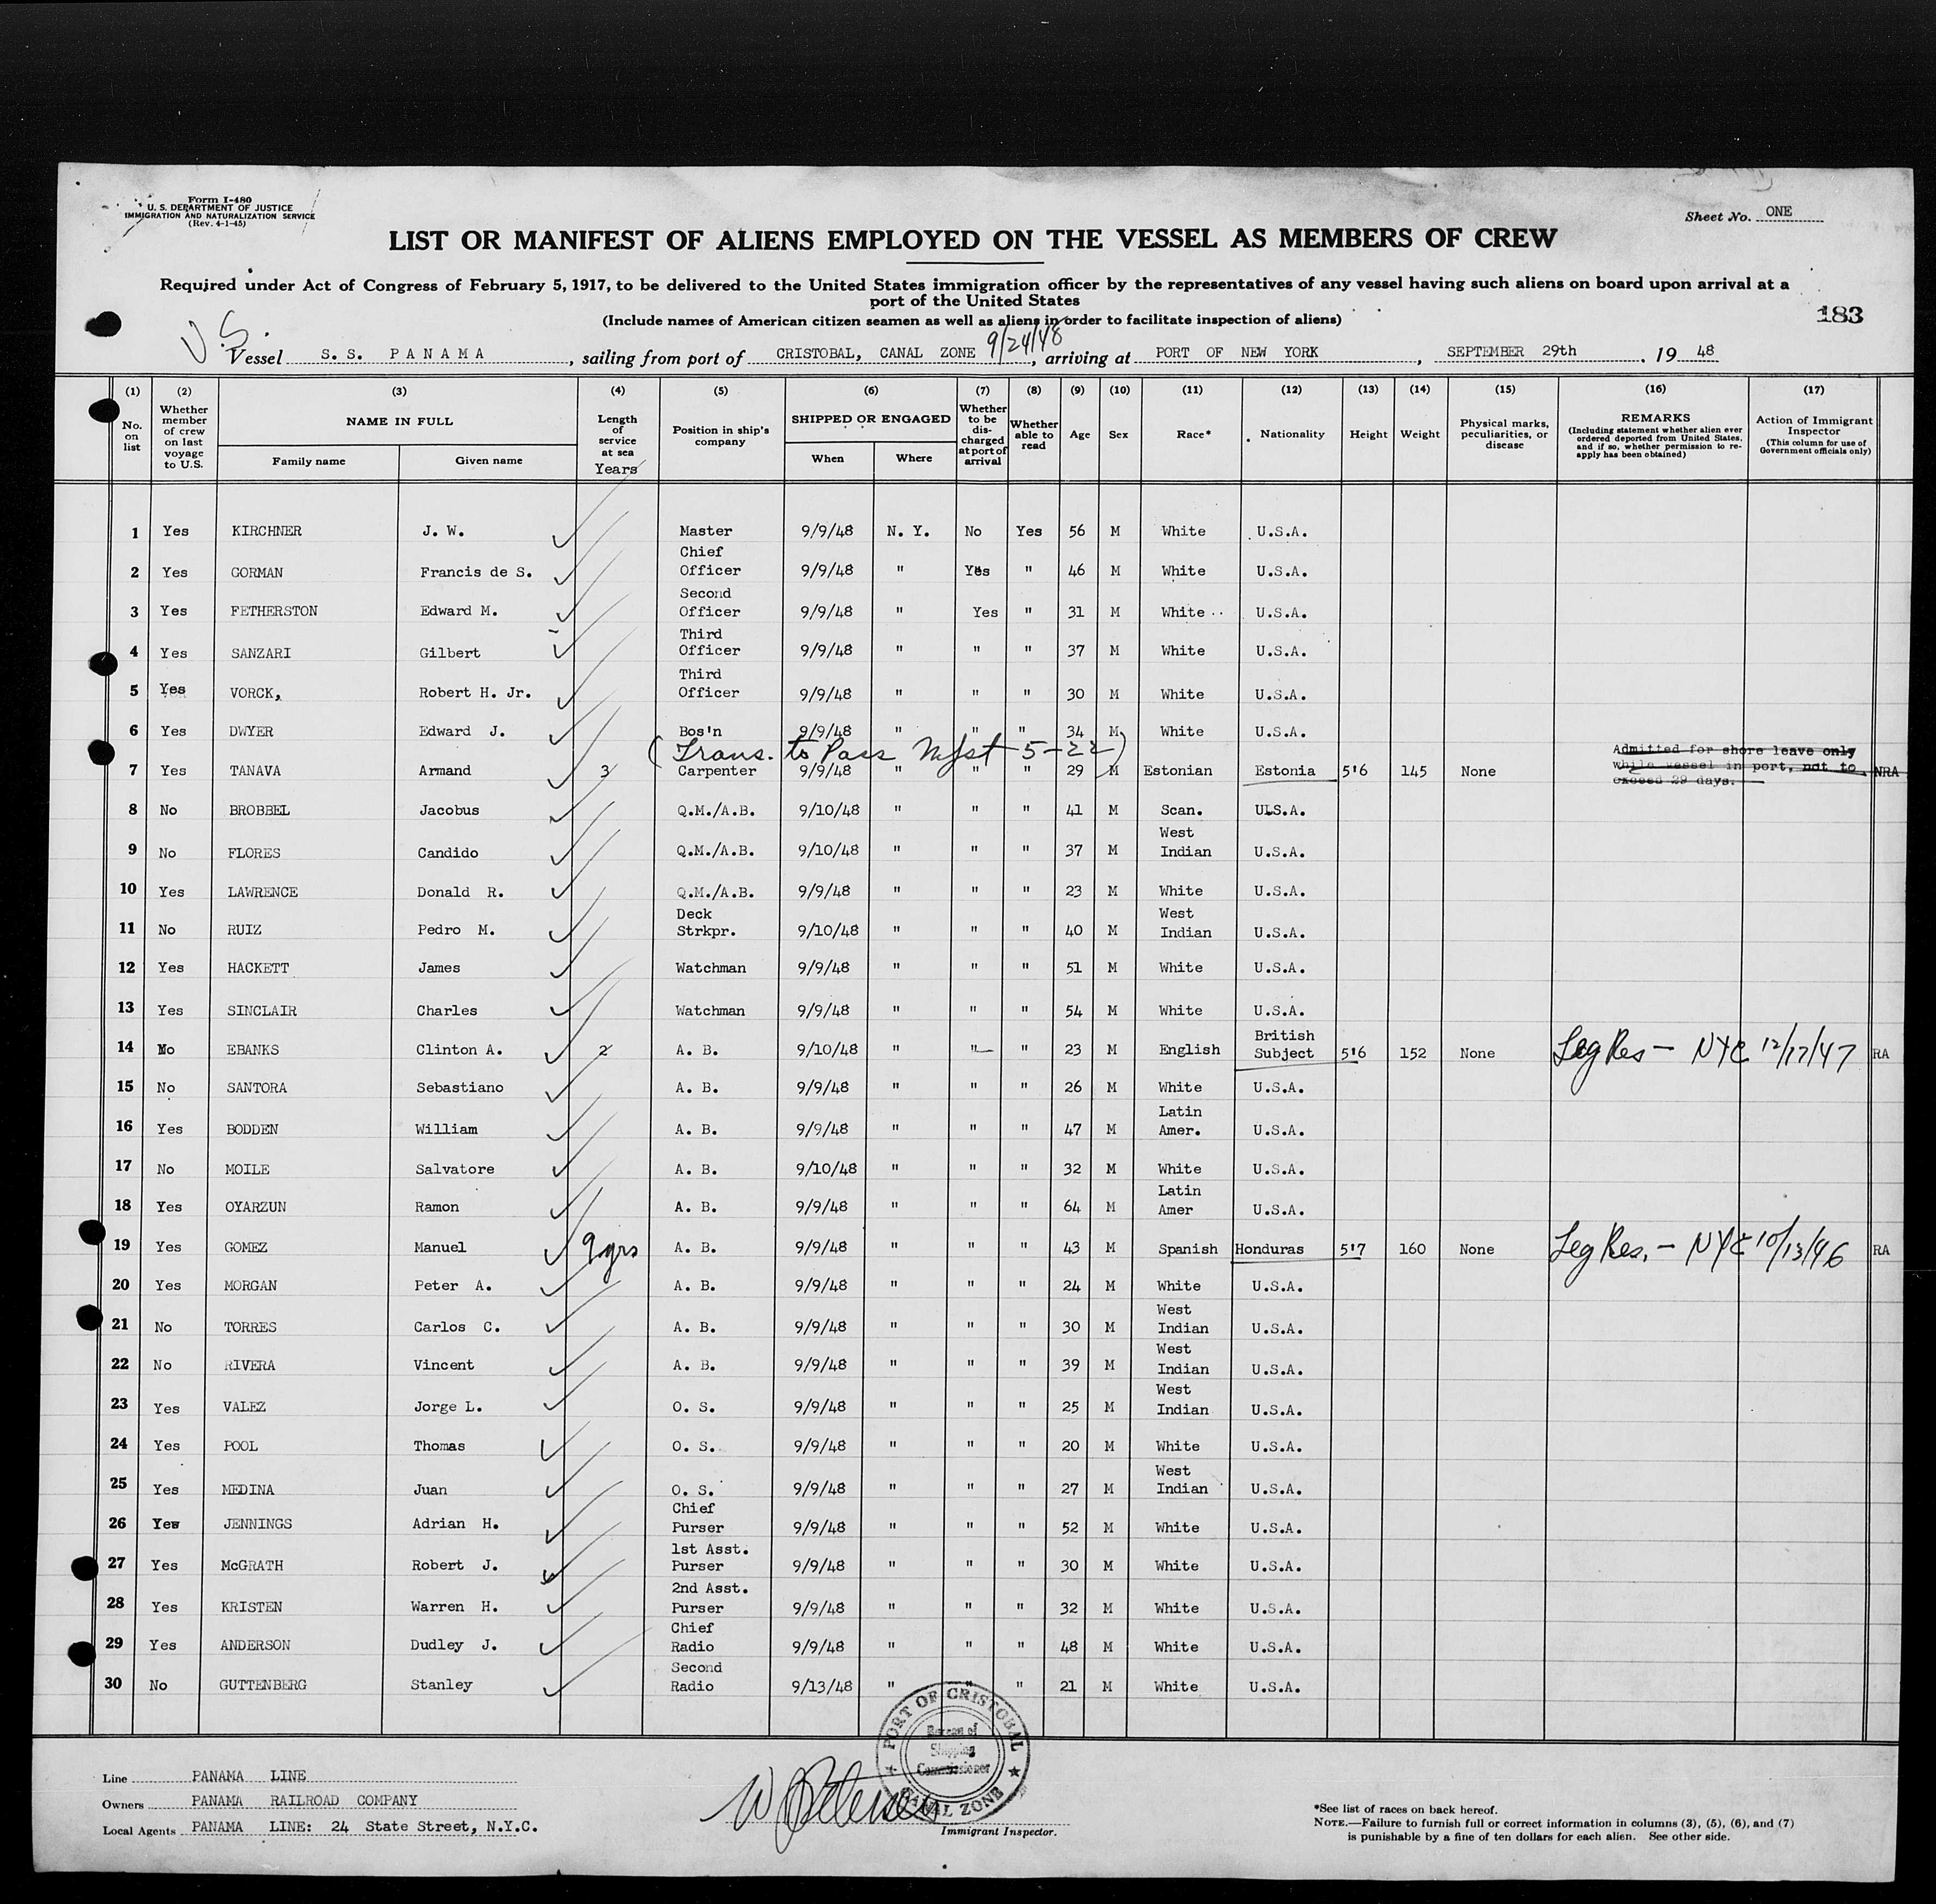 Form I-480
U. S. DEPARTMENT OF JUSTICE
IMMIGRATION AND NATURALIZATION SERVICE
(Rev. 4-1-45)
Sheet No. ONE
LIST OR MANIFEST OF ALIENS EMPLOYED ON THE VESSEL AS MEMBERS OF CREW
Required under Act of Congress of February 5, 1917, to be delivered to the United States immigration officer by the representatives of any vessel having such aliens on board upon arrival at a
port of the United States
(Include names of American citizen seamen as well as aliens in order to facilitate inspection of aliens)
183
U.S.
9/24/48
Vessel S. S. PANAMA, sailing from port of CRISTOBAL, CANAL ZONE, arriving at PORT OF NEW YORK, SEPTEMBER 29th, 19 48
(1) (2) (3) (4) (5) (6) (7) (8) (9) (10) (11) (12) (13) (14) (15) (16) (17)
No. on list
Whether member of crew on last voyage to U.S.
NAME IN FULL
Family name Given name
Length of service at sea
Years
Position in ship's company
SHIPPED OR ENGAGED
When Where
Whether to be discharged at port of arrival
Whether able to read
Age
Sex
Race*
Nationality
Height
Weight
Physical marks, peculiarities, or disease
REMARKS
(Including statement whether alien ever ordered deported from United States, and if so, whether permission to re-apply has been obtained)
Action of Immigrant Inspector
(This column for use of Government officials only)
1 Yes KIRCHNER J. W. Master 9/9/48 N. Y. No Yes 56 M White U.S.A.
2 Yes GORMAN Francis de S. Chief Officer 9/9/48 " Yes " 46 M White U.S.A.
3 Yes FETHERSTON Edward M. Second Officer 9/9/48 " Yes " 31 M White U.S.A.
4 Yes SANZARI Gilbert Third Officer 9/9/48 " " " 37 M White U.S.A.
5 Yes VORCK, Robert H. Jr. Third Officer 9/9/48 " " " 30 M White U.S.A.
6 Yes DWYER Edward J. Bos'n 9/9/48 " " " 34 M White U.S.A.
(Trans. to Pass Mfst 5-22)
7 Yes TANAVA Armand 3 Carpenter 9/9/48 " " " 29 M Estonian Estonia 5'6 145 None Admitted for shore leave only while vessel in port, not to exceed 29 days. NRA
8 No BROBBEL Jacobus Q.M./A.B. 9/10/48 " " " 41 M Scan. U.S.A.
9 No FLORES Candido Q.M./A.B. 9/10/48 " " " 37 M West Indian U.S.A.
10 Yes LAWRENCE Donald R. Q.M./A.B. 9/9/48 " " " 23 M White U.S.A.
11 No RUIZ Pedro M. Deck Strkpr. 9/10/48 " " " 40 M West Indian U.S.A.
12 Yes HACKETT James Watchman 9/9/48 " " " 51 M White U.S.A.
13 Yes SINCLAIR Charles Watchman 9/9/48 " " " 54 M White U.S.A.
14 No EBANKS Clinton A. 2 A. B. 9/10/48 " " " 23 M English British Subject 5'6 152 None Leg Res - NYC 12/17/47 RA
15 No SANTORA Sebastiano A. B. 9/9/48 " " " 26 M White U.S.A.
16 Yes BODDEN William A. B. 9/9/48 " " " 47 M Latin Amer. U.S.A.
17 No MOILE Salvatore A. B. 9/10/48 " " " 32 M White U.S.A.
18 Yes OYARZUN Ramon A. B. 9/9/48 " " " 64 M Latin Amer U.S.A.
19 Yes GOMEZ Manuel 9 yrs A. B. 9/9/48 " " " 43 M Spanish Honduras 5'7 160 None Leg Res. - NYC 10/13/46 RA
20 Yes MORGAN Peter A. A. B. 9/9/48 " " " 24 M White U.S.A.
21 No TORRES Carlos C. A. B. 9/9/48 " " " 30 M West Indian U.S.A.
22 No RIVERA Vincent A. B. 9/9/48 " " " 39 M West Indian U.S.A.
23 Yes VALEZ Jorge L. O. S. 9/9/48 " " " 25 M West Indian U.S.A.
24 Yes POOL Thomas O. S. 9/9/48 " " " 20 M White U.S.A.
25 Yes MEDINA Juan O. S. 9/9/48 " " " 27 M West Indian U.S.A.
26 Yew JENNINGS Adrian H. Chief Purser 9/9/48 " " " 52 M White U.S.A.
27 Yes McGRATH Robert J. 1st Asst. Purser 9/9/48 " " " 30 M White U.S.A.
28 Yes KRISTEN Warren H. 2nd Asst. Purser 9/9/48 " " " 32 M White U.S.A.
29 Yes ANDERSON Dudley J. Chief Radio 9/9/48 " " " 48 M White U.S.A.
30 No GUTTENBERG Stanley Second Radio 9/13/48 " " " 21 M White U.S.A.
PORT OF CRISTOBAL
Bureau of
Shipping
Commissioner
CANAL ZONE
Line PANAMA LINE
Owners PANAMA RAILROAD COMPANY
Local Agents PANAMA LINE: 24 State Street, N.Y.C.
Immigrant Inspector.
*See list of races on back hereof.
NOTE.—Failure to furnish full or correct information in columns (3), (5), (6), and (7)
is punishable by a fine of ten dollars for each alien. See other side.